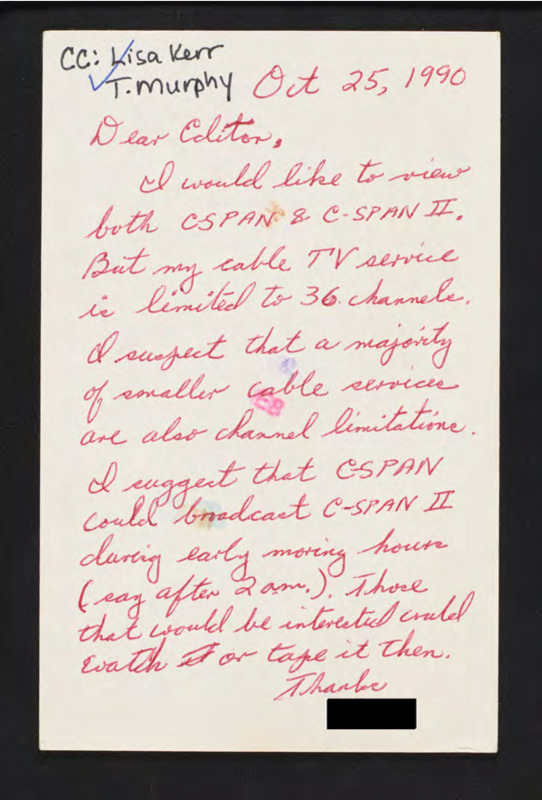 CC: Lisa Kerr
T. Murphy
Oct 25, 1990
Dear Editor,
I would like to view
both CSPAN & C-SPAN II.
But my cable TV service
is limited to 36 channels.
I suspect that a majority
of smaller cable services
are also channel limitations.
I suggest that CSPAN
could broadcast C-SPAN II
during early moring hours
(say after 2 am.). Those
that would be interested could
watch it or tape it then.
Thanks